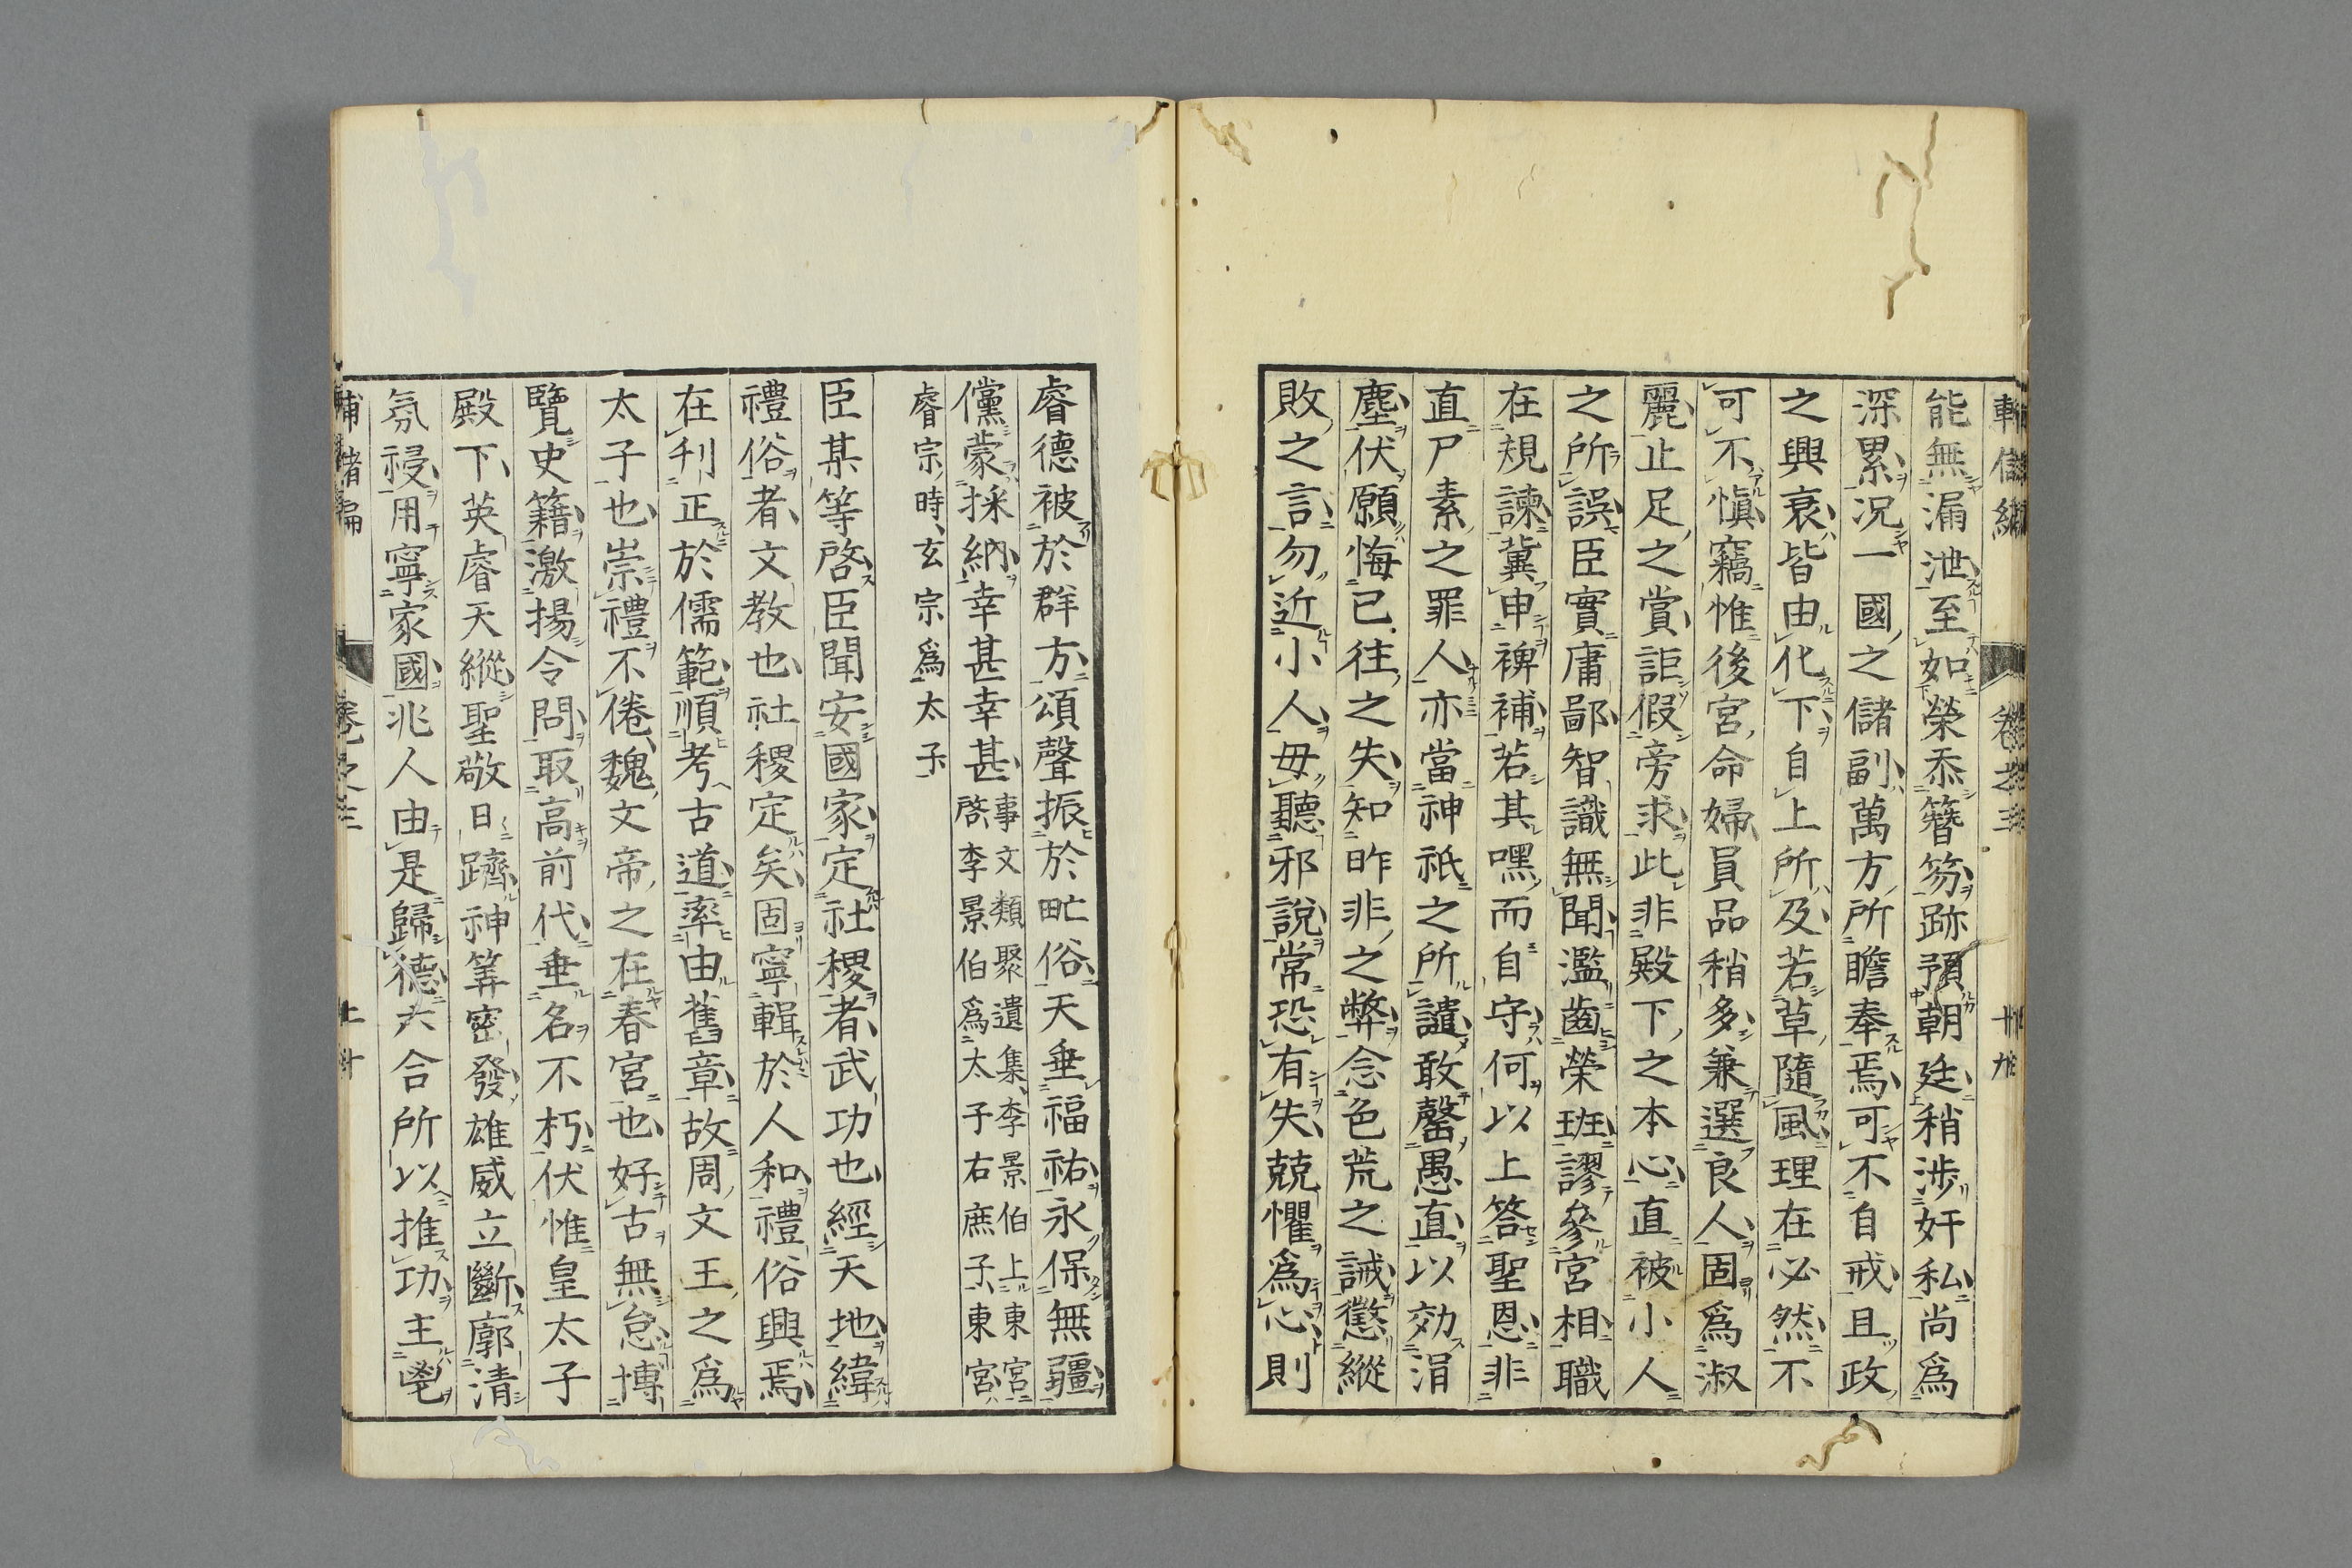 能無漏泄至如榮忝簪笏跡預朝廷稍涉奸私尚爲
深累況一國之儲副萬方所瞻奉焉可不自戒且政
之興衰皆由化下自上所及若草隨風理在必然不
可不愼竊惟後宮命婦員品稍多兼選良人固爲淑
麗止足之賞詎假旁求此非殿下之本心直被小人
之所誤臣實庸鄙智識無聞濫齒榮班謬參宮相職
在規諫冀申裨補若其嘿而自守何以上答聖恩非
直尸素之罪人亦當神祇之所譴敢罄愚直以効涓
塵伏願悔已往之失知昨非之弊念色荒之誡懲縱
敗之言勿近小人毋聽邪說常恐有失兢懼爲心則
睿德被於群方頌聲振於甿俗天垂福祐永保無疆
儻蒙採納幸甚幸甚
事文類聚遺集李景伯上東宮
啓李景伯爲太子右庶子東宮
睿宗時玄宗爲太子
臣某等啓臣聞安國家定社稷者武功也經天地緯
禮俗者文教也社稷定矣固寧輯於人和禮俗興焉
在刋正於儒範順考古道率由舊章故周文王之爲
太子也崇禮不倦魏文帝之在春宮也好古無怠博
覽史籍激揚令問取高前代垂名不朽伏惟皇太子
殿下英睿天縱聖敬日躋神筭密發雄威立斷廓清
氛祲用寧家國兆人由是歸德六合所以推功主鬯
卷之三